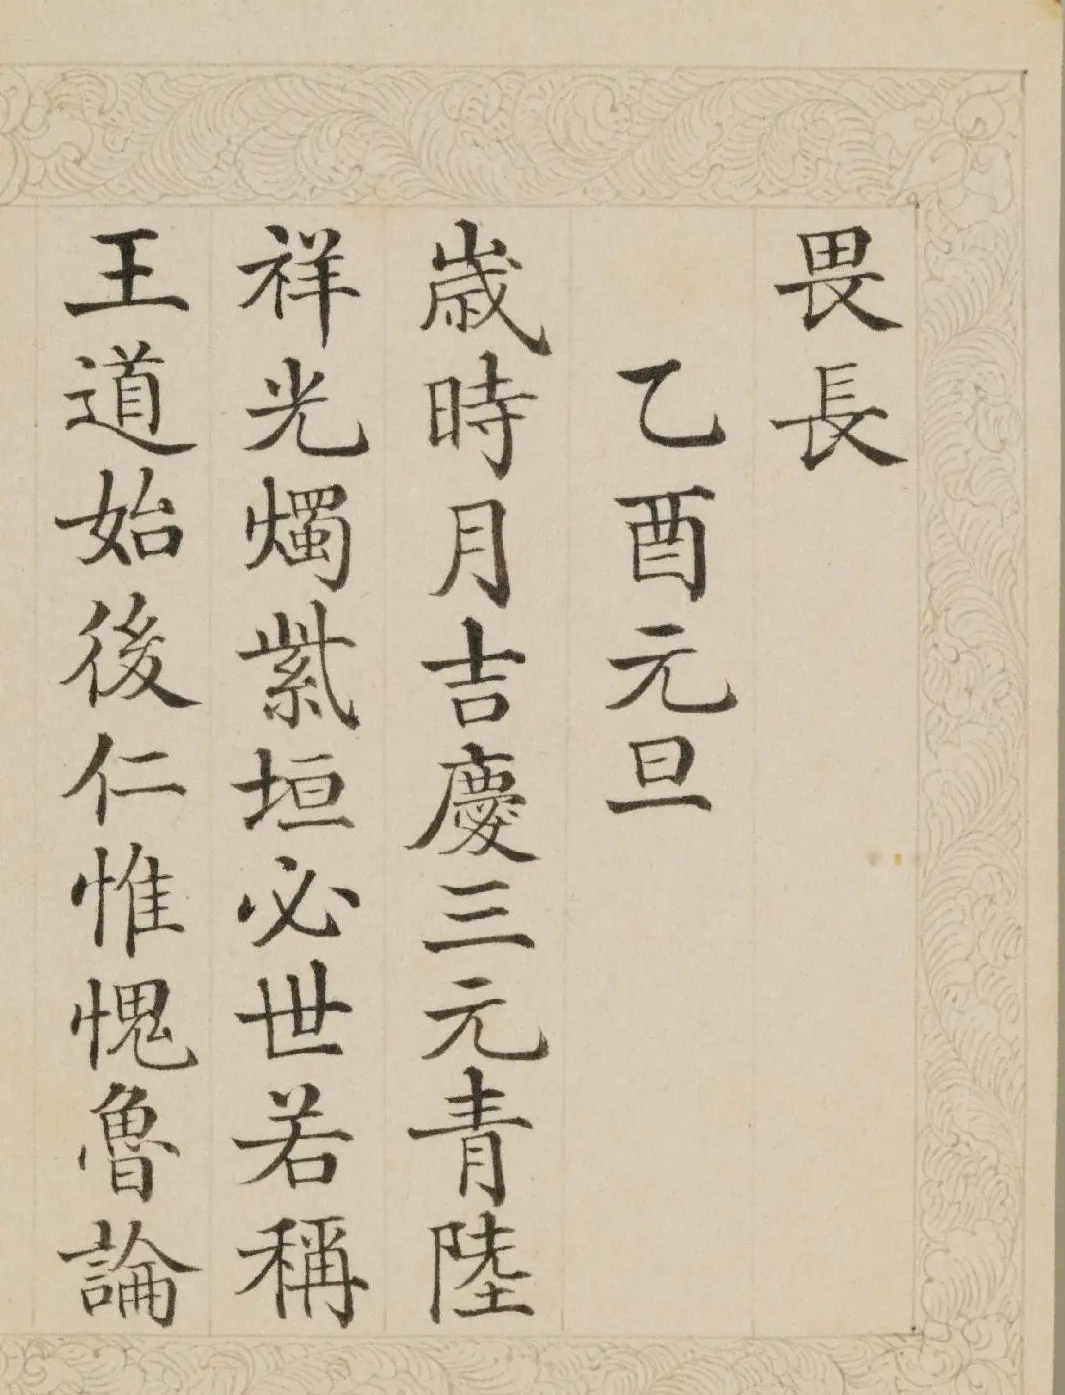 畏長
乙酉元旦
歲時月吉慶三元青陸
祥光燭紫垣必世若稱
王道始後仁惟愧魯論